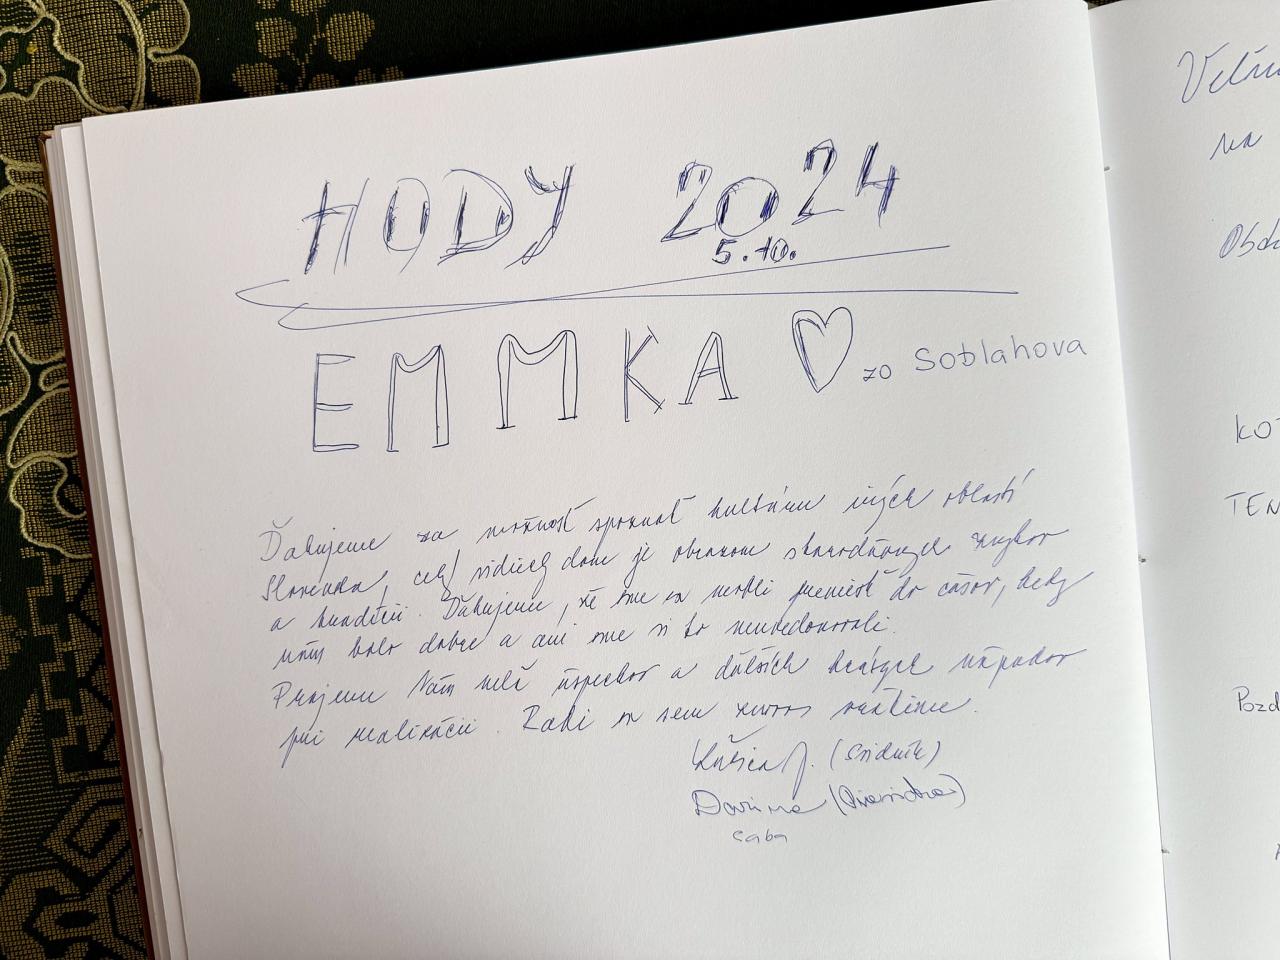 HODY 2024
5.10.
EMMKA zo Soblahova
Ďakujeme za možnosť spoznať kultúru iných oblastí
Slovenska, celý vidiecky dom je obrazom starodávnych zvykov
a tradícii. Ďakujeme, že sme sa mohli preniesť do časov, kedy
nám bolo dobre a ani sme si to neuvedomovali.
Prajeme Vám veľa úspechov a ďalších krásnych nápadov
pri realizácii. Radi sa sem znova vrátime.
(Svidník)
Darina
saba
na
KO
TEN
Pozd